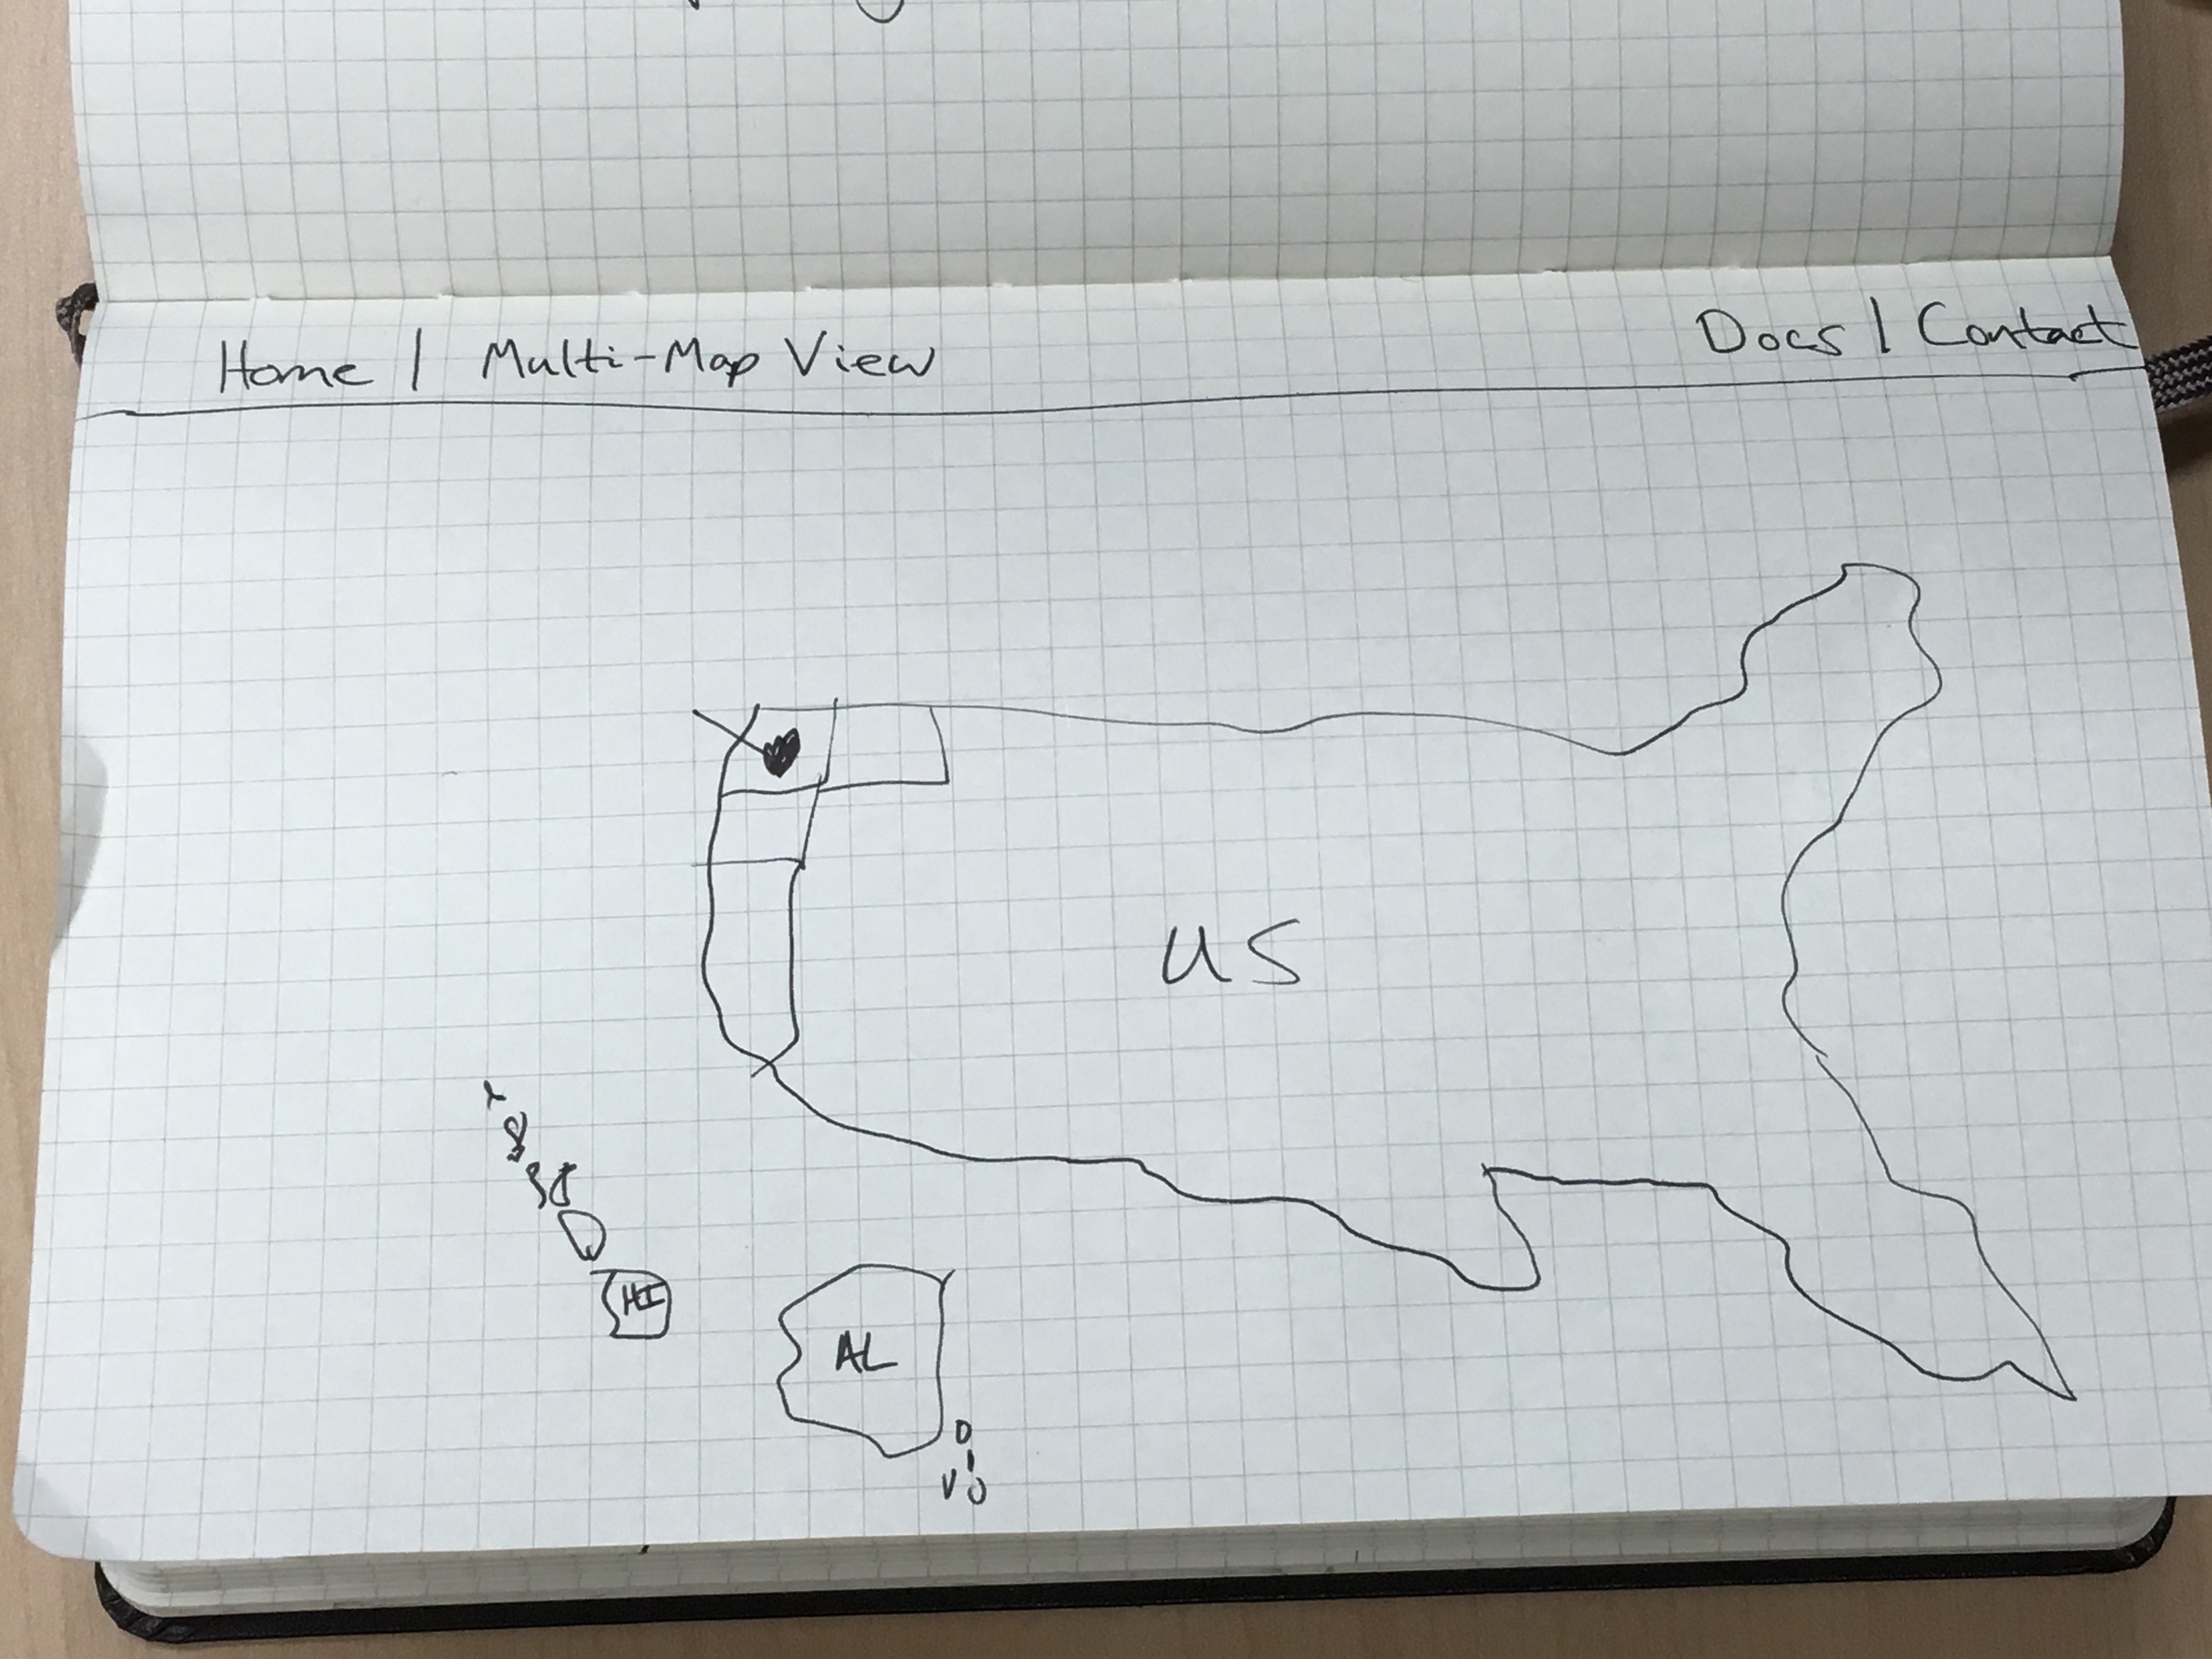 Home | Multi-Map View
Docs | Contact
US
HI
AL